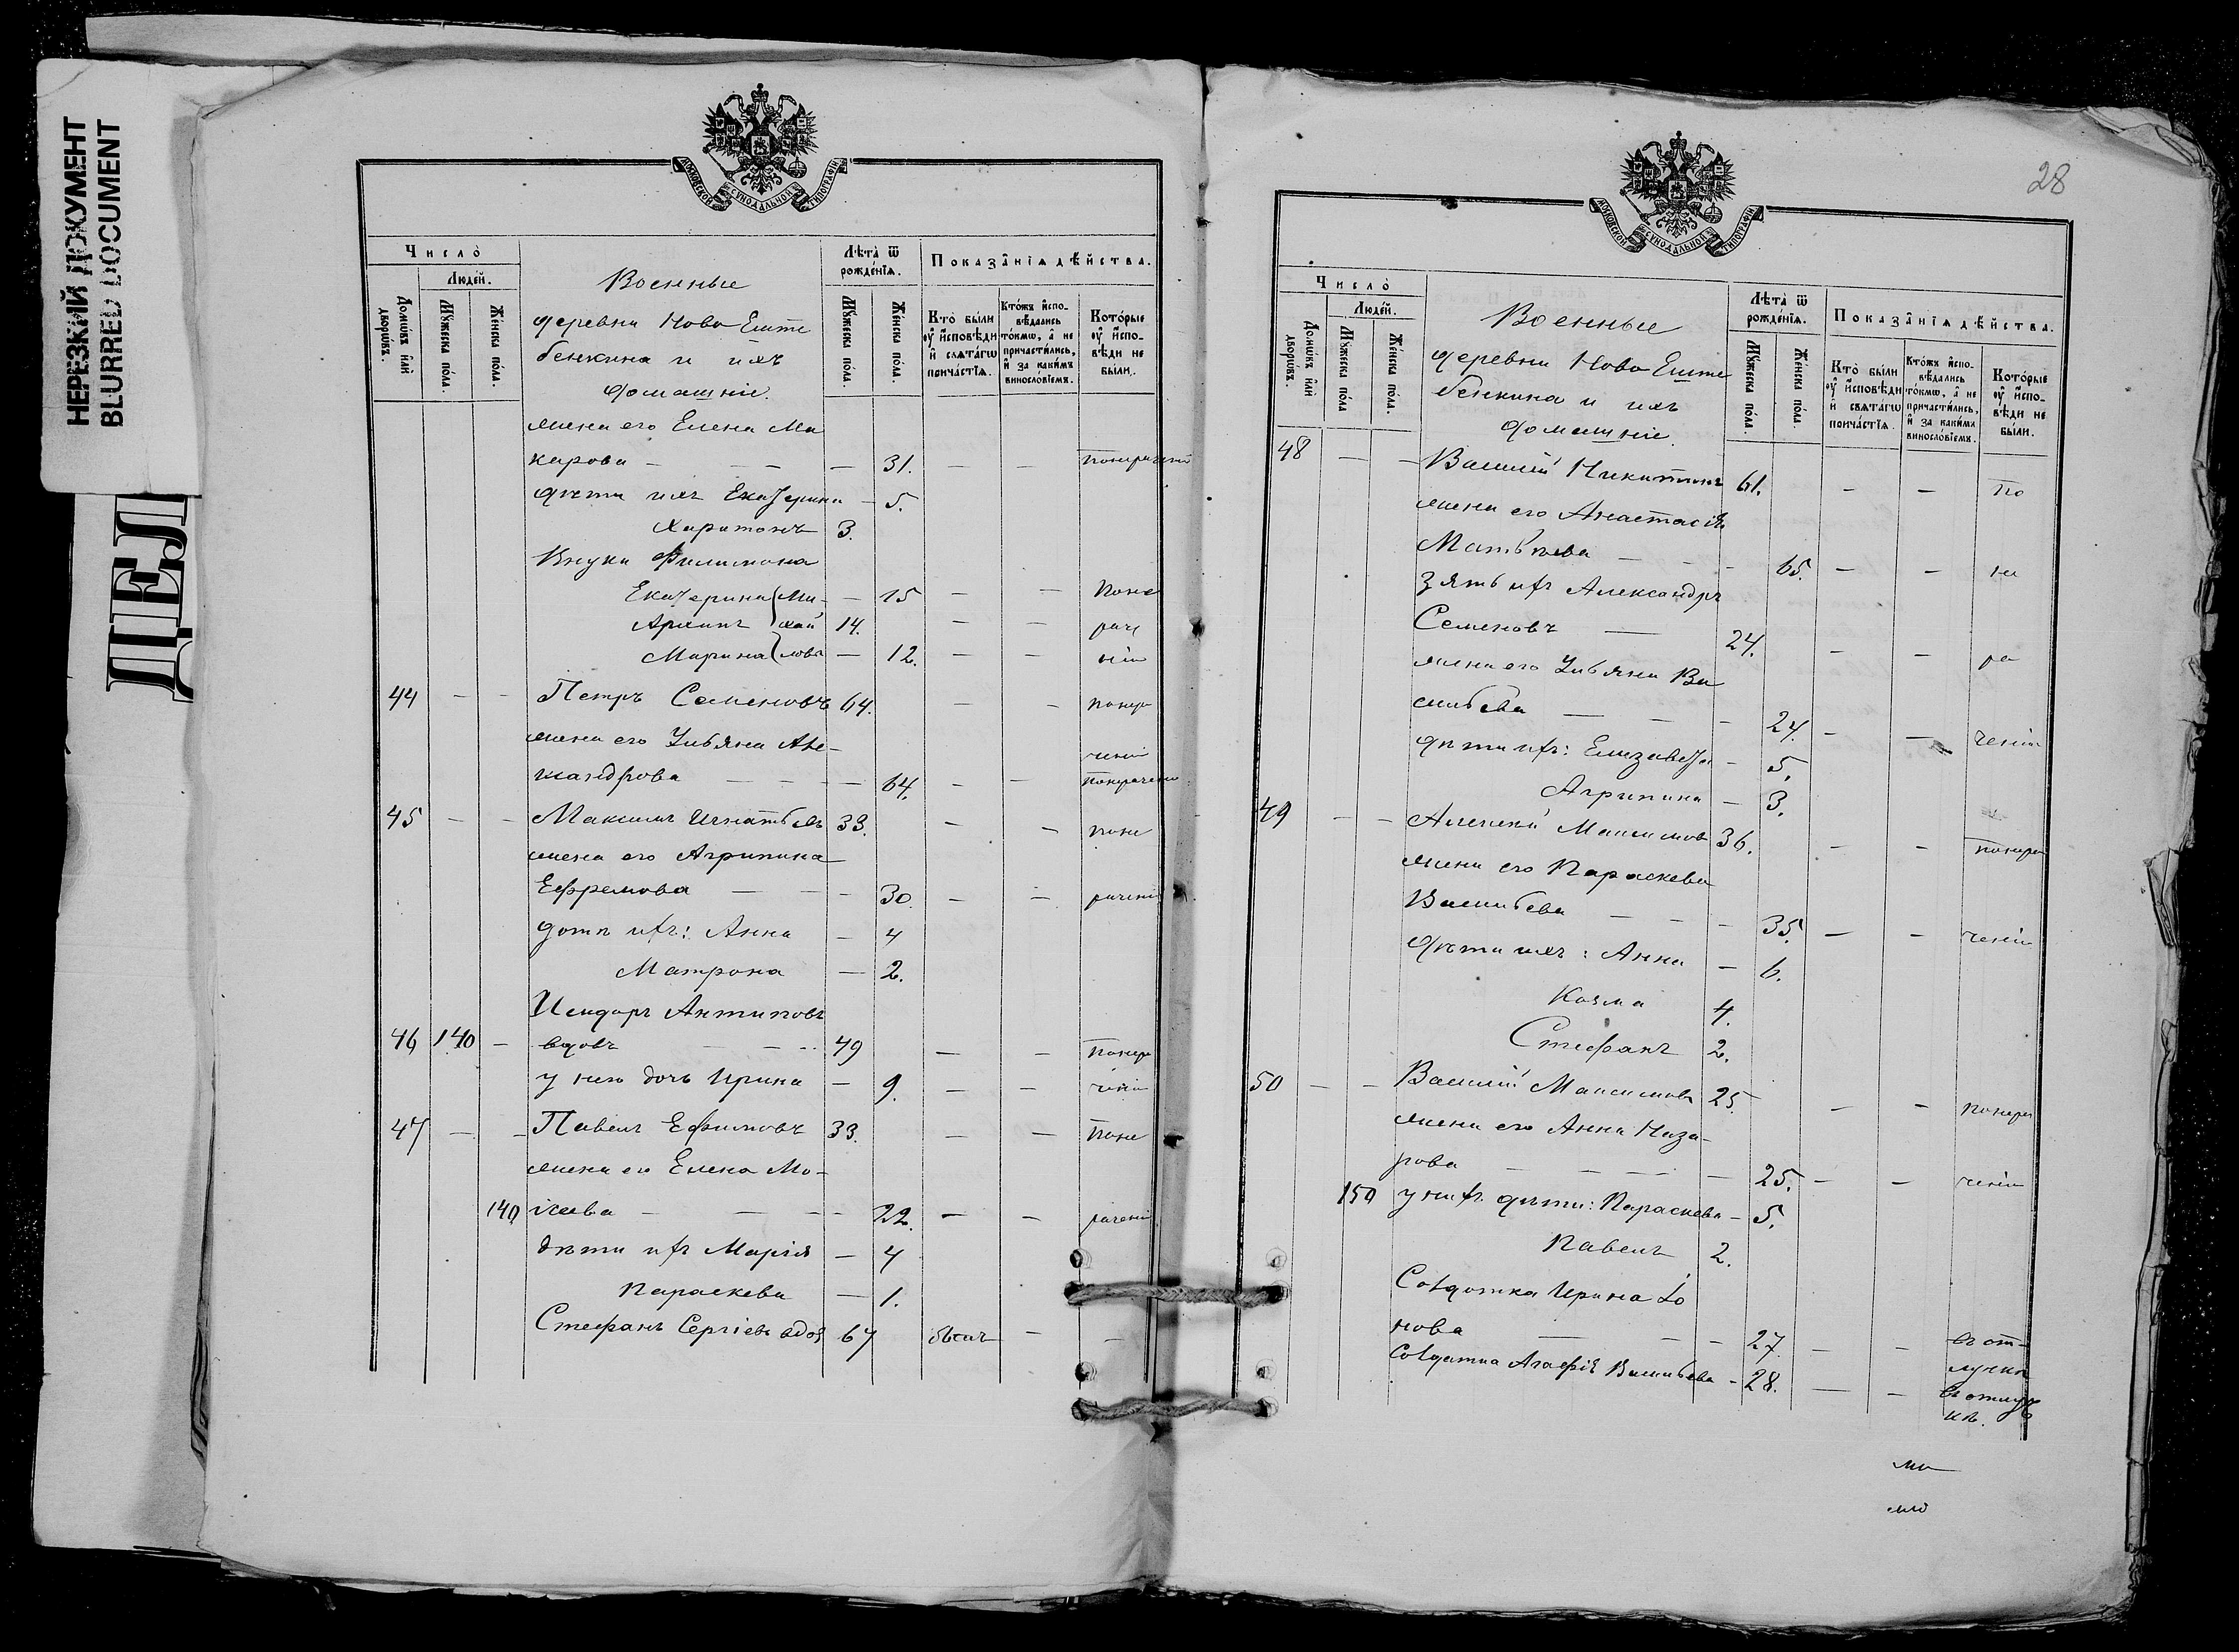 НЕРЕЗКИЙ ДОКУМЕНТ
BLURRED DOCUMENT
ДЕЛ
МОСКОВСКОЙ СѴНОДАЛЬНОЙ ТИПОГРАФІИ
Число̀
Люде́й.
Домѡ́въ и҆лѝ дворѡ́въ.
Мꙋ́жеска по́ла.
Же́нска по́ла.
Военные
деревни Ново Еште
бенкина и ихъ
домашніе.
Лѣ́та ѿ рожде́нїѧ.
Мꙋ́жеска по́ла.
Же́нска по́ла.
Показа̑нїѧ дѣ́йства.
Кто̀ бы́ли оу҆ и҆́сповѣди и҆ свѧта́гѡ прича́стїѧ.
Кто́жъ и҆сповѣ́дались то́кмѡ, а҆ не причасти́лись, и҆ за каки́мъ винословїемъ.
Кото́рые оу҆ и҆́сповѣди не бы́ли.
жена его Елена Ма
карова — — — — 31. — — понерачению
дѣти ихъ Екатерина — 5.
Харитонъ 3.
Внуки Филимона
Екатерина Ми- — 15 — — Поне
Архипъ хай 14. — — раче
Марина лова — 12. — — нію
44 — — Петръ Семеновъ 64. — — понера
жена его Ульяна Але-
ченію
ксандрова — — — — 64. — — понерачению
45 — — Максимъ Игнатьевъ 33. — — поне
жена его Агрипина
Ефремова — — — 30. — — раченію
дѣти ихъ: Анна — 4
Матрона — 2.
Исидоръ Антиповъ
46 140 — вдовъ — — 49 — — Понера
у него дочь Ирина — 9. — — ченію
47 — — Павелъ Ефимовъ 33. — — Поне
жена его Елена Мо-
140 исеева — — — 22. — — раченію
дѣти ихъ Марія — 4
Параскева — 1.
Стефанъ Сергіевъ вдов 67 былъ — —
28
МОСКОВСКОЙ СѴНОДАЛЬНОЙ ТИПОГРАФІИ
Число̀
Люде́й.
Домѡ́въ и҆лѝ дворѡ́въ.
Мꙋ́жеска по́ла
Же́нска по́ла.
Военные
деревни Ново Еште
бенкина и ихъ
домашніе.
Лѣ́та ѿ рожде́нїѧ.
Мꙋ́жеска по́ла.
Же́нска по́ла.
Показа̑нїѧ дѣ́йства.
Кто̀ бы́ли оу҆ и҆́сповѣди и҆ свѧта́гѡ прича́стїѧ.
Кто́жъ и҆сповѣ́дались то́кмѡ, а҆ не причасти́лись, и҆ за каки́мъ винословїемъ.
Кото́рые оу҆ и҆́сповѣди не бы́ли.
48 — — Василій Никитинъ 61. — — по
жена его Анастасія
Матвѣева — — — 65. — — не
зять ихъ Александръ
Семеновъ — 24. — — ра
жена его Ульяна Ва
сильева — — — 24. — — ченію
дѣти ихъ: Елизавета — 5.
Агрипина — 3.
49 — — Алексей Максимов 36. — — понера
жена его Параскева
Васильева — — — 35. — — ченію
дѣти ихъ: Анна — 6.
Козма 4.
Стефанъ 2.
50 — — Василій Максимовъ 25. — — понера
жена его Анна Наза-
рова — — — — 25. — — ченію
150 у нихъ дѣти: Параскева — 5.
Павелъ 2.
Солдатка Ирина Іо
нова — — — 27. — — въ от-
лучкѣ
Солдатка Агафія Васильева — 28. — — въ отлуч
кѣ.